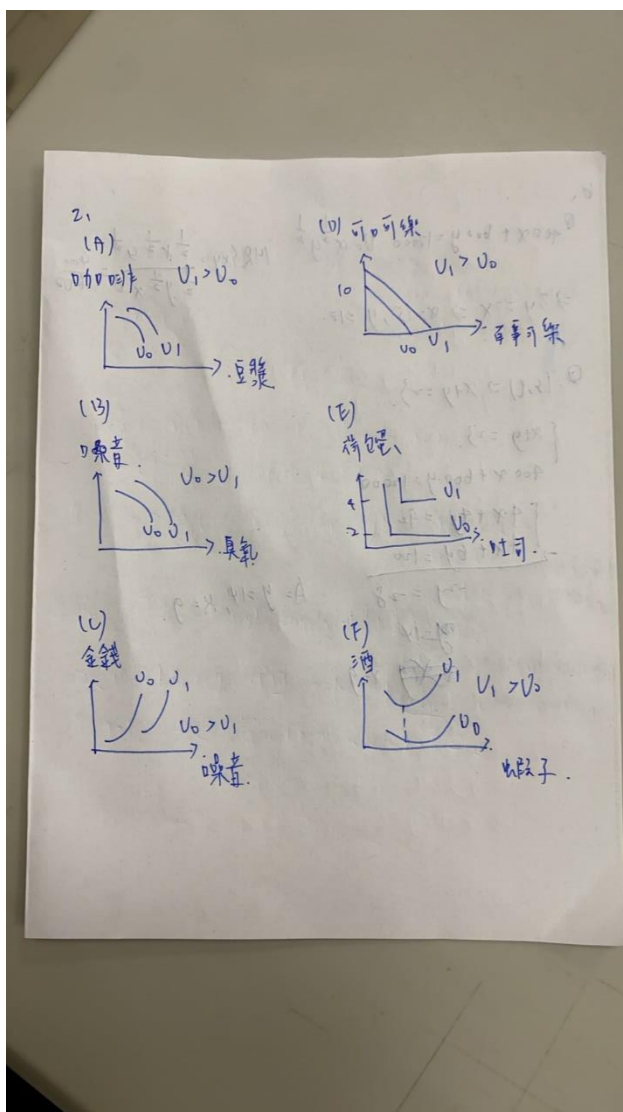 2.
(A)
咖啡 U₁>U₀
U₀ U₁
豆漿
(B)
噪音
U₀>U₁
U₀ U₁
臭氧
(C)
金錢
U₀ U₁
U₀>U₁
噪音
(D) 可口可樂
U₁>U₀
10
U₀ U₁
百事可樂
(E)
荷包蛋
4 U₁
2 U₀
吐司
(F)
酒
U₁
U₁>U₀
U₀
蝦子